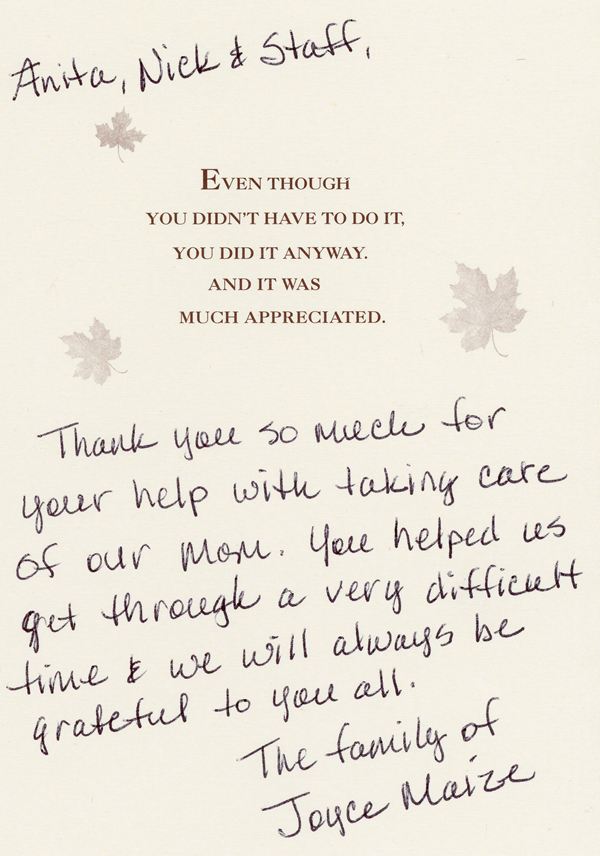 Anita, Nick & Staff,
EVEN THOUGH
YOU DIDN'T HAVE TO DO IT,
YOU DID IT ANYWAY.
AND IT WAS
MUCH APPRECIATED.
Thank you so much for
your help with taking care
of our Mom. You helped us
get through a very difficult
time & we will always be
grateful to you all.
The family of
Joyce Maize